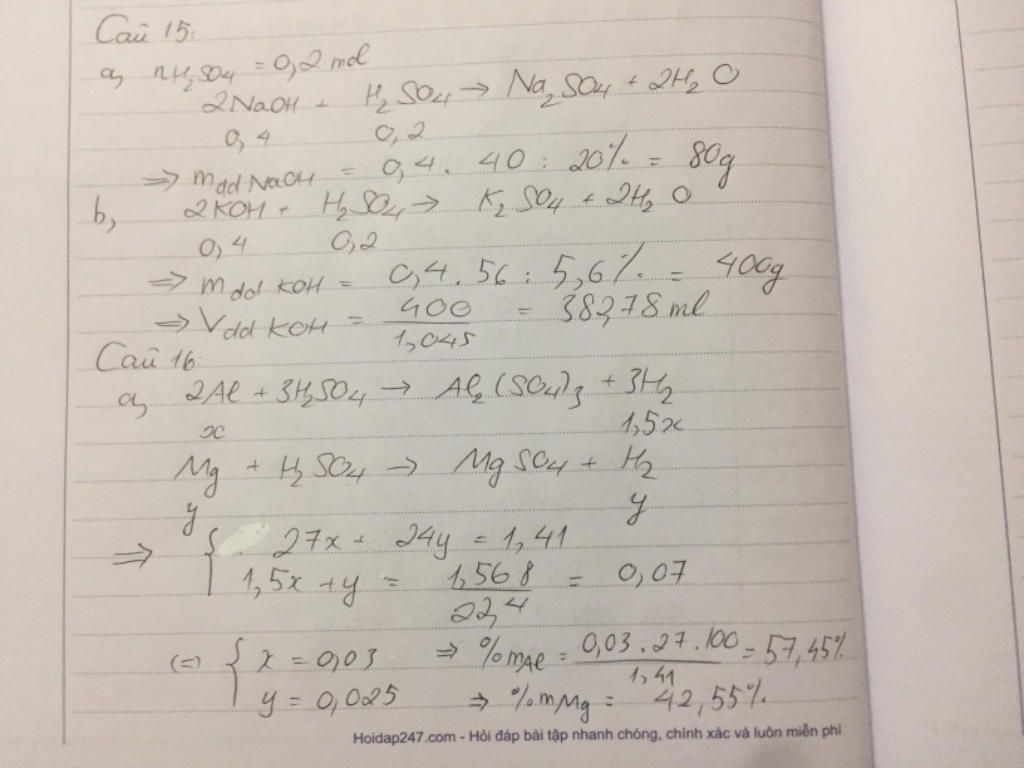 Câu 15:
a, nH₂SO₄ = 0,2 mol
2NaOH + H₂SO₄ → Na₂SO₄ + 2H₂O
0,4 0,2
⇒ mdd NaOH = 0,4 . 40 : 20% = 80g
b, 2KOH + H₂SO₄ → K₂SO₄ + 2H₂O
0,4 0,2
⇒ mdd KOH = 0,4 . 56 : 5,6% = 400g
⇒ Vdd KOH = 400/1,045 = 382,78 ml
Câu 16:
a, 2Al + 3H₂SO₄ → Al₂(SO₄)₃ + 3H₂
x 1,5x
Mg + H₂SO₄ → MgSO₄ + H₂
y y
⇒ { 27x + 24y = 1,41
1,5x + y = 1,568/22,4 = 0,07
(=) { x = 0,03 ⇒ %mAl = 0,03 . 27 . 100/1,41 = 57,45%
y = 0,025 ⇒ %mMg = 42,55%
Hoidap247.com - Hỏi đáp bài tập nhanh chóng, chính xác và luôn miễn phí